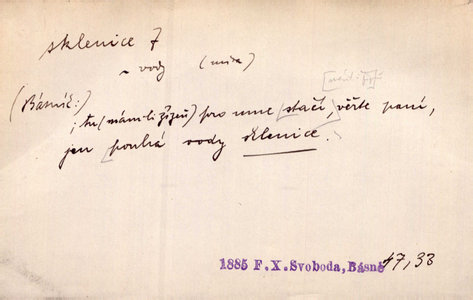 sklenice 7
~ vody (míra)
(Básník:)
; tu (mám-li žízeň) pro mne stačí, věřte paní,
jen pouhá vody sklenice.
1885 F.X.Svoboda, Básně 47,33